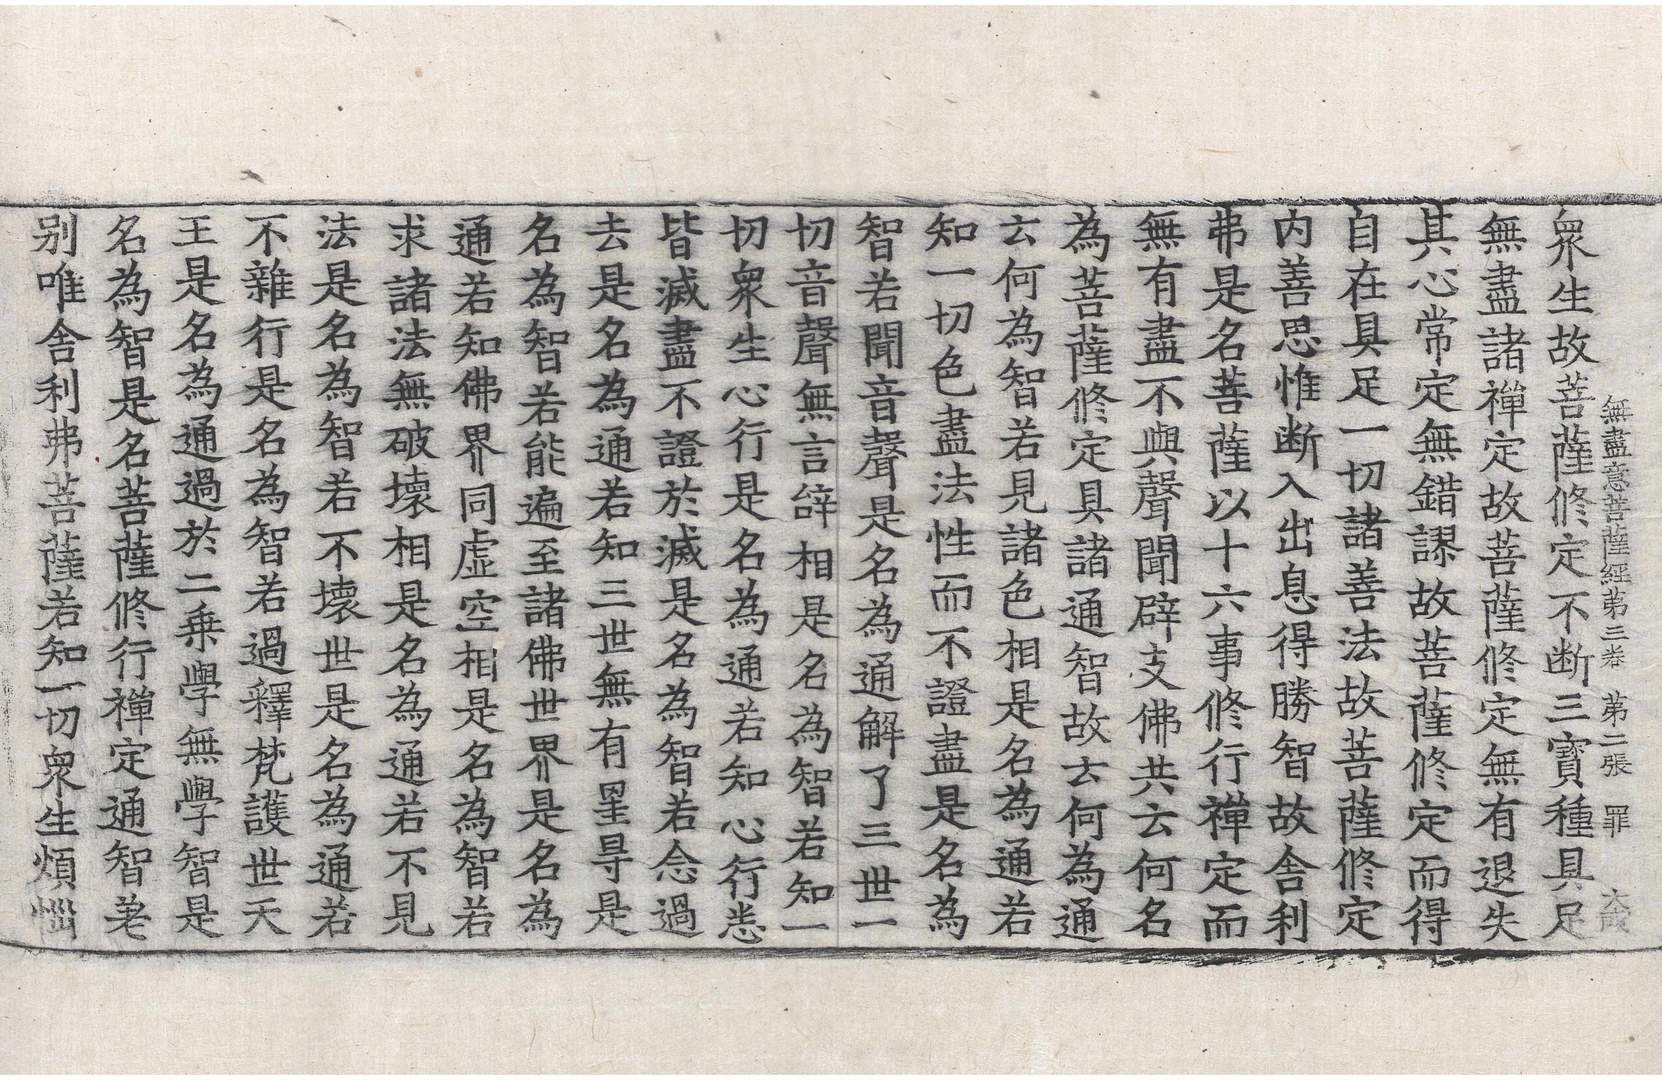 無盡意菩薩經第三卷　第二張　罪　大成
衆生故菩薩修定不断三寳種具足
無盡諸禪定故菩薩修定無有退失
其心常定無錯謬故菩薩修定而得
自在具足一切諸善法故菩薩修定
内善思惟断入出息得勝智故舎利
弗是名菩薩以十六事修行禪定而
無有盡不與聲聞辟支佛共云何名
為菩薩修定具諸通智故云何為通
云何為智若見諸色相是名為通若
知一切色盡法性而不證盡是名為
智若聞音聲是名為通解了三世一
切音聲無言辝相是名為智若知一
切衆生心行是名為通若知心行悉
皆滅盡不證於滅是名為智若念過
去是名為通若知三世無有罣㝵是
名為智若能遍至諸佛世界是名為
通若知佛界同虚空相是名為智若
求諸法無破壊相是名為通若不見
法是名為智若不壊世是名為通若
不雜行是名為智若過釋梵護世天
王是名為通過於二乗學無學智是
名為智是名菩薩修行禪定通智差
别唯舎利弗菩薩若知一切衆生煩惱